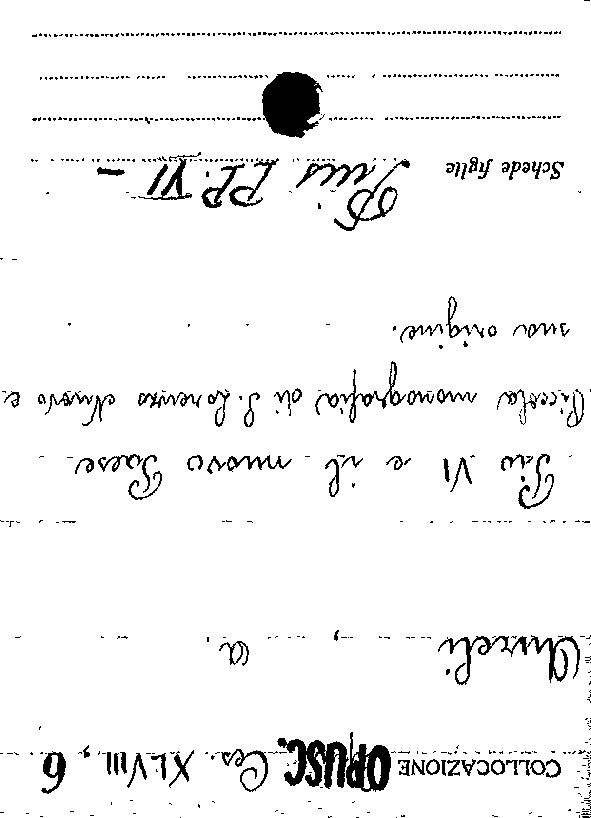 COLLOCAZIONE OPUSC. Ces. XLVIII, 6
Aureli, A.
Pio VI e il nuovo Paese
Piccola monografia di S. Lorenzo Nuovo e
sua origine.
Schede figlie Pius PP. VI -